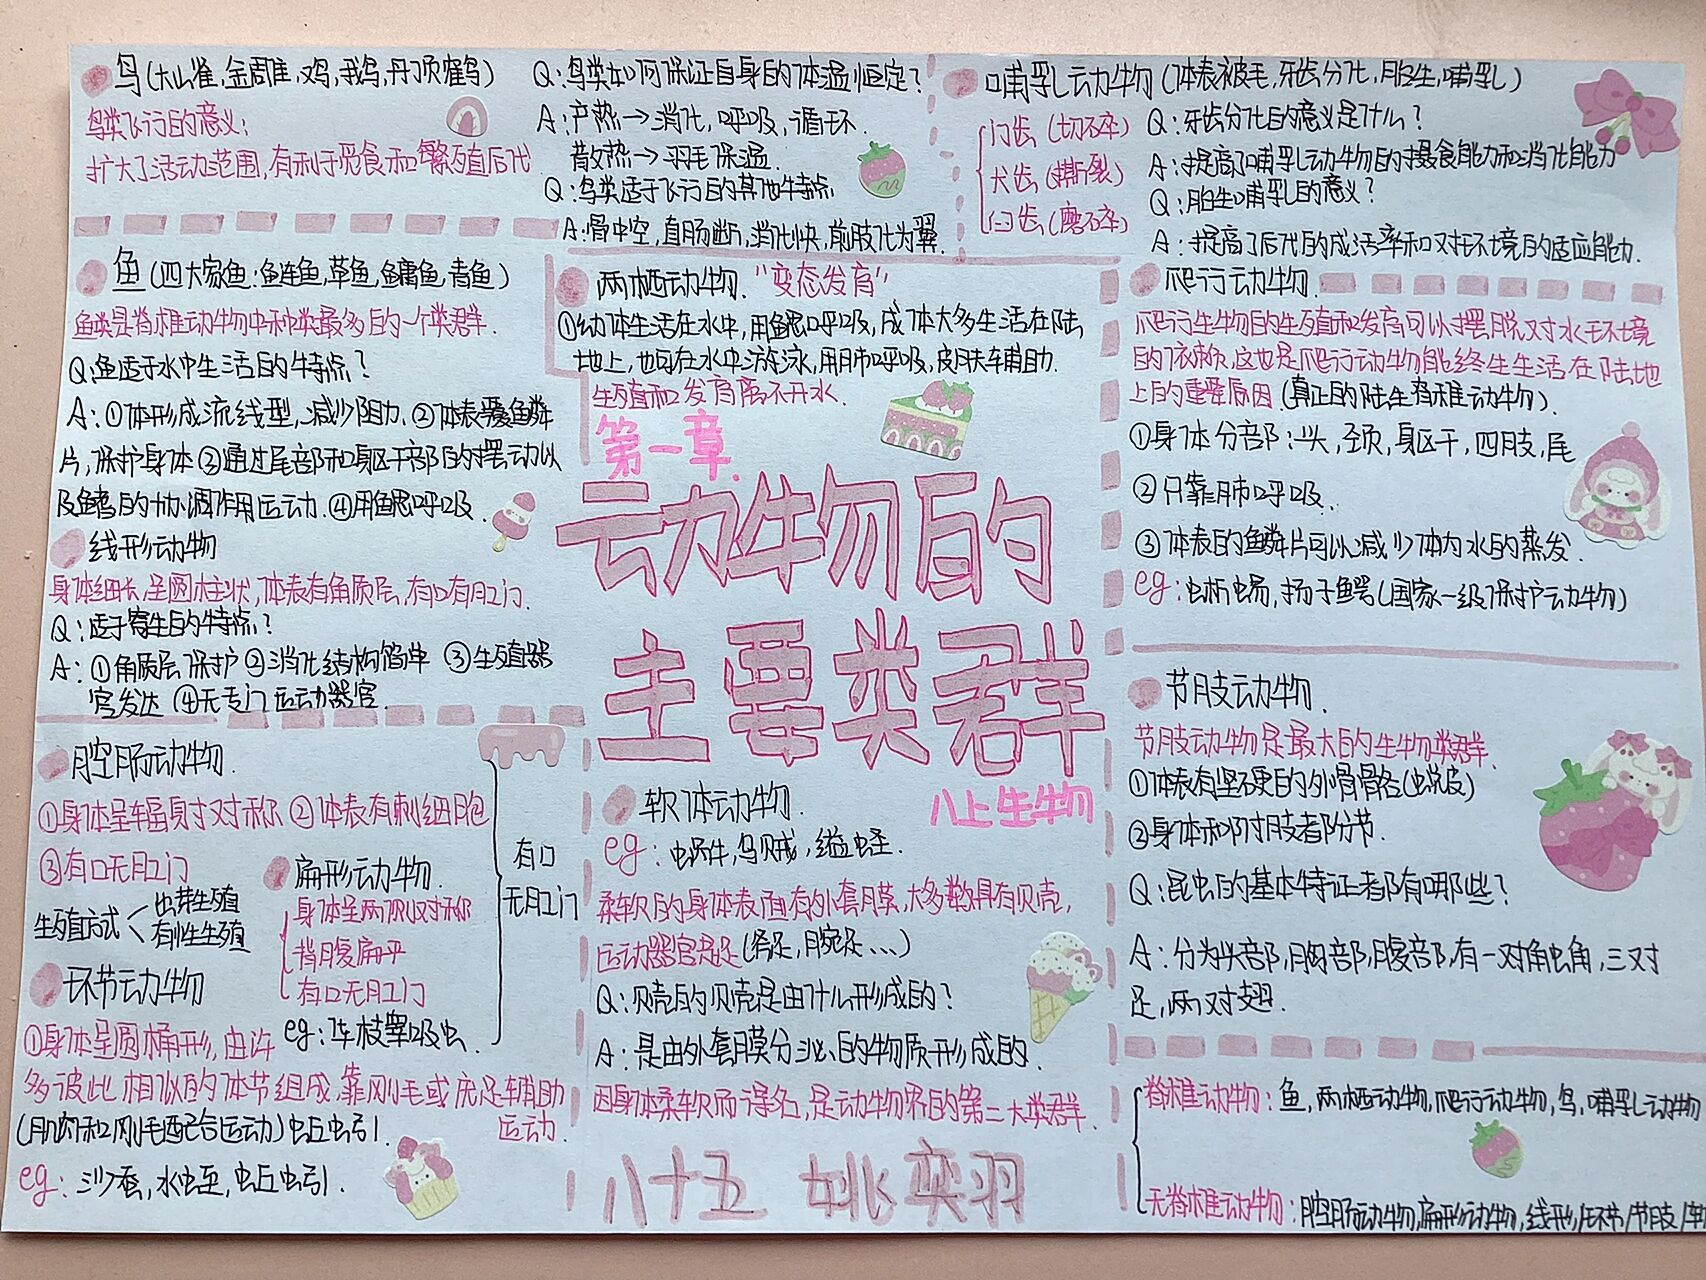 鸟(大山雀,金雕,鸡,鹅,丹顶鹤)
鸟类飞行的意义:
扩大了活动范围,有利于觅食和繁殖后代
Q:鸟类如何保证自身的体温恒定?
A:产热→消化,呼吸,循环.
散热→羽毛保温.
Q:鸟类适于飞行的其他特点
A:骨中空,直肠断,消化快,前肢化为翼.
哺乳动物(体表被毛,牙齿分化,胎生,哺乳)
门齿(切碎)
犬齿(撕裂)
臼齿(磨碎)
Q:牙齿分化的意义是什么?
A:提高了哺乳动物的摄食能力和消化能力
Q:胎生哺乳的意义?
A:提高了后代的成活率和对环境的适应能力.
鱼(四大家鱼:鲢鱼,草鱼,鳙鱼,青鱼)
鱼类是脊椎动物中种类最多的一个类群.
Q:鱼适于水中生活的特点?
A:①体形成流线型,减少阻力.②体表覆鱼鳞
片,保护身体③通过尾部和躯干部的摆动以
及鳍的协调作用运动.④用鱼鳃呼吸.
线形动物
身体细长,呈圆柱状,体表有角质层,有口有肛门.
Q:适于寄生的特点?
A:①角质层保护②消化结构简单 ③生殖器
官发达 ④无专门运动器官.
两栖动物."变态发育"
①幼体生活在水中,用鱼鳃呼吸,成体大多生活在陆
地上,也可在水中游泳,用肺呼吸,皮肤辅助.
生殖和发育离不开水.
第一章.
动物的
主要类群
八上生物
爬行动物
爬行生物的生殖和发育可以摆脱对水环境
的依赖.这也是爬行动物能终生生活在陆地
上的重要原因(真正的陆生脊椎动物).
①身体分部:头,颈,躯干,四肢,尾
②只靠肺呼吸.
③体表的鱼鳞片可以减少体内水的蒸发.
eg:蜥蜴,扬子鳄(国家一级保护动物)
节肢动物.
节肢动物是最大的生物类群.
①体表有坚硬的外骨骼(蜕皮)
②身体和附肢都分节.
Q:昆虫的基本特征都有哪些?
A:分为头部,胸部,腹部,有一对角虫角,三对
足,两对翅.
腔肠动物.
①身体呈辐射对称 ②体表有刺细胞
③有口无肛门
生殖方式<出芽生殖
有性生殖
扁形动物.
身体呈两侧对称
背腹扁平
有口无肛门
eg:华枝睾吸虫
有口
无肛门
环节动物
①身体呈圆桶形,由许
多彼此相似的体节组成,靠刚毛或疣足辅助
运动.
(肌肉和刚毛配合运动)蚯蚓.
eg:沙蚕,水蛭,蚯蚓.
软体动物.
eg:蜗牛,乌贼,缢蛏.
柔软的身体表面有的外套膜,大多数具有贝壳,
运动器官是足(斧足,腕足...)
Q:贝壳的贝壳是由什么形成的?
A:是由外套膜分泌的物质形成的
因身体柔软而得名,是动物界的第二大类群.
八十五 姚奕羽
脊椎动物:鱼,两栖动物,爬行动物,鸟,哺乳动物
无脊椎动物:腔肠动物,扁形动物,线形/环节/节肢/